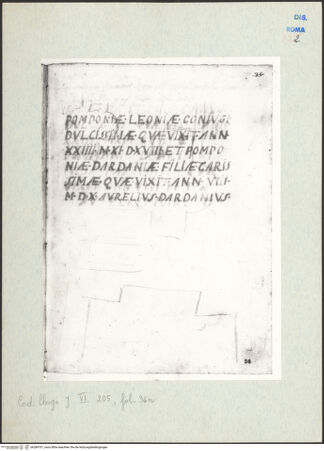 DIS.
ROMA
2
POMPONIÆ·LEONIÆ CONIVGI
DVLCISSIMÆ·QVÆ VIXIT·ANN·
XXIIII·M·XI·D·XVIII·ET POMPO
NIÆ·DARDANIÆ FILIÆ CARIS
SIMÆ·QVÆ VIXIT·ANN·VIII·
M·D·X·AVRELIVS·DARDANIVS·
36
Cod. Chigi J. VI. 205, fol. 36r